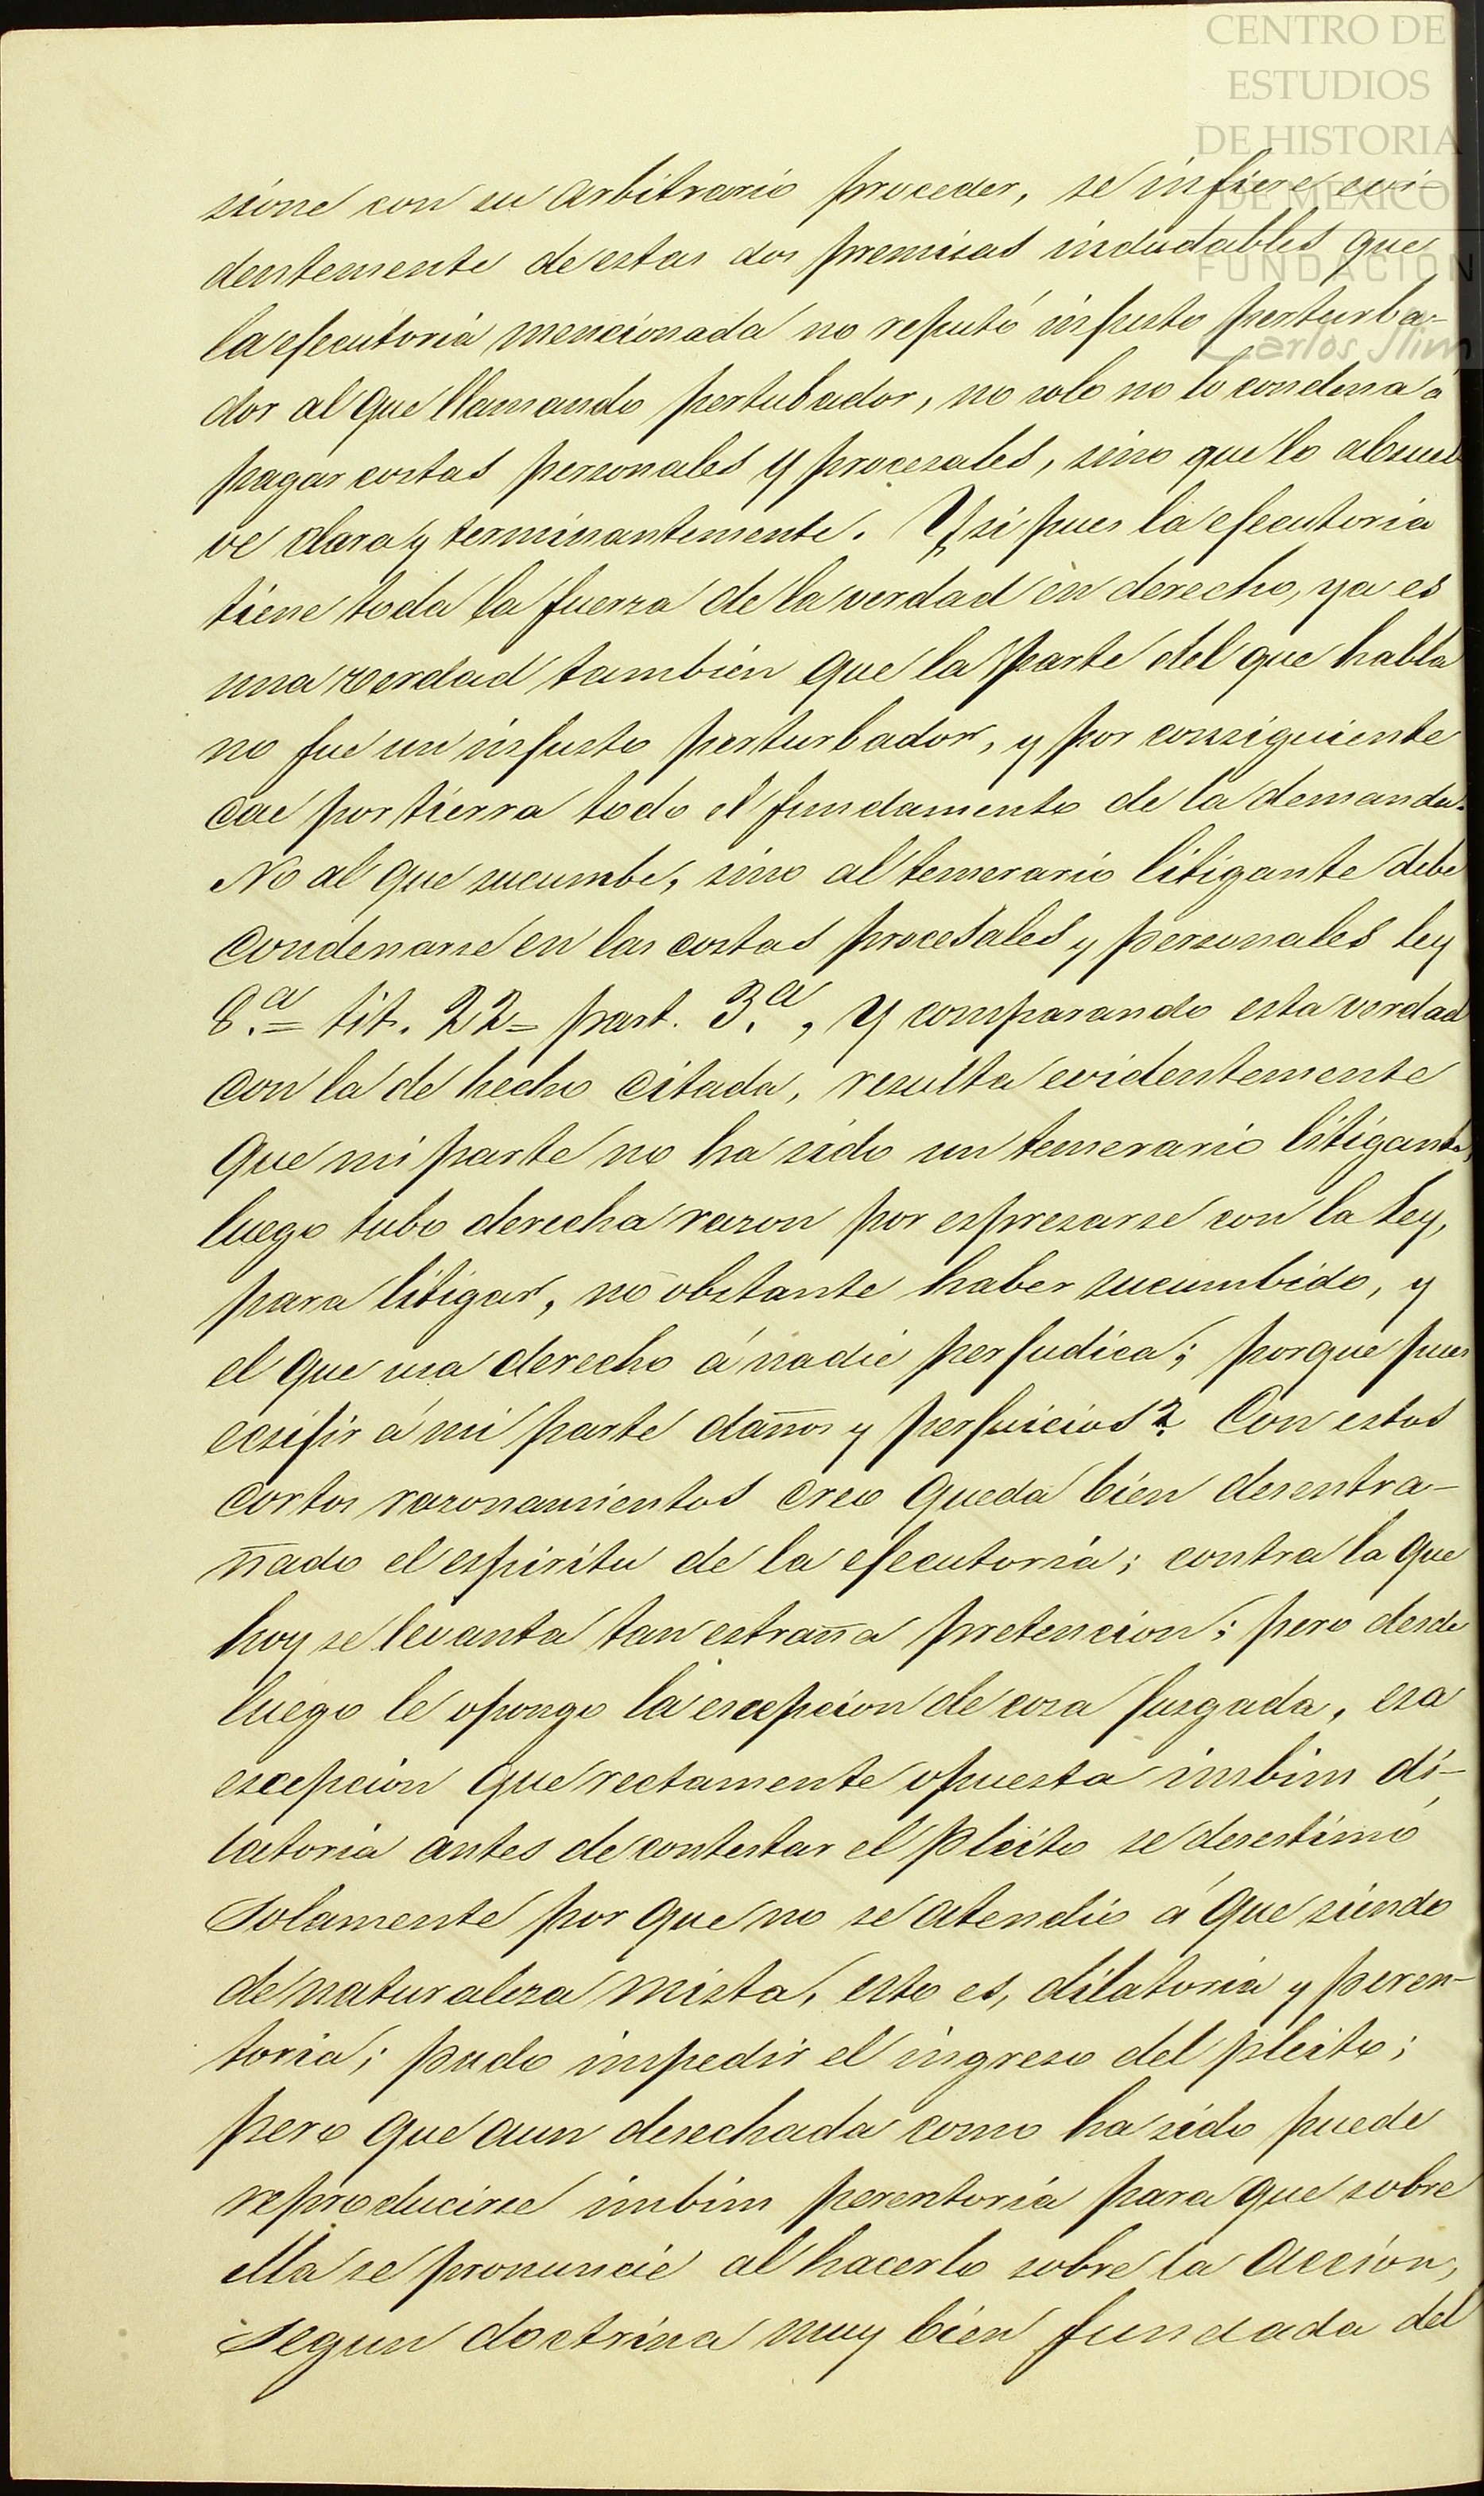 CENTRO DE
ESTUDIOS
DE HISTORIA
DE MÉXICO
FUNDACIÓN
Carlos Slim
sione con su arbitrario proceder, se infiere evi-
dentemente de estas dos premisas indudables que
la ejecutoria mencionada no reputó injusto perturba-
dor al que llamando pertubador, no solo no lo condena á
pagar costas personales y procesales, sino que lo absuel
ve clara y terminantemente. Y si pues la ejecutoria
tiene toda la fuerza de la verdad en derecho, ya es
una verdad tambien que la parte del que habla
no fue un injusto perturbador, y por consiguiente
cae por tierra todo el fundamento de la demanda.
No al que sucumbe, sino al temerario litigante debe
condenarse en las costas procesales y personales ley
8.a= tit. 22= part. 3.a, y comparando esta verdad
con la de hecho citada, resulta evidentemente
que mi parte no ha sido un temerario litigante,
luego tubo derecha razon por espresarse con la Ley,
para litigar, no obstante haber sucumbido, y
el que usa derecho á nadie perjudica; porque pues
ecsijir á mi parte daños y perjuicios? Con estos
cortos razonamientos creo queda bien desentra-
ñado el espiritu de la ejecutoria; contra la que
hoy se levanta tan estraña pretencion; pero desde
luego le opongo la escepcion de cosa juzgada, esa
escepcion que rectamente opuesta imbim di-
latoria antes de contestar el pleito se desestimó
solamente por que no se atendio á que siendo
de naturaleza mista, esto es, dilatoria y peren-
toria; pudo impedir el ingreso del pleito;
pero que aun desechada como ha sido puede
reproducirse imbim perentoria para que sobre
ella se pronuncie al hacerlo sobre la accion,
segun doctrina muy bien fundada del